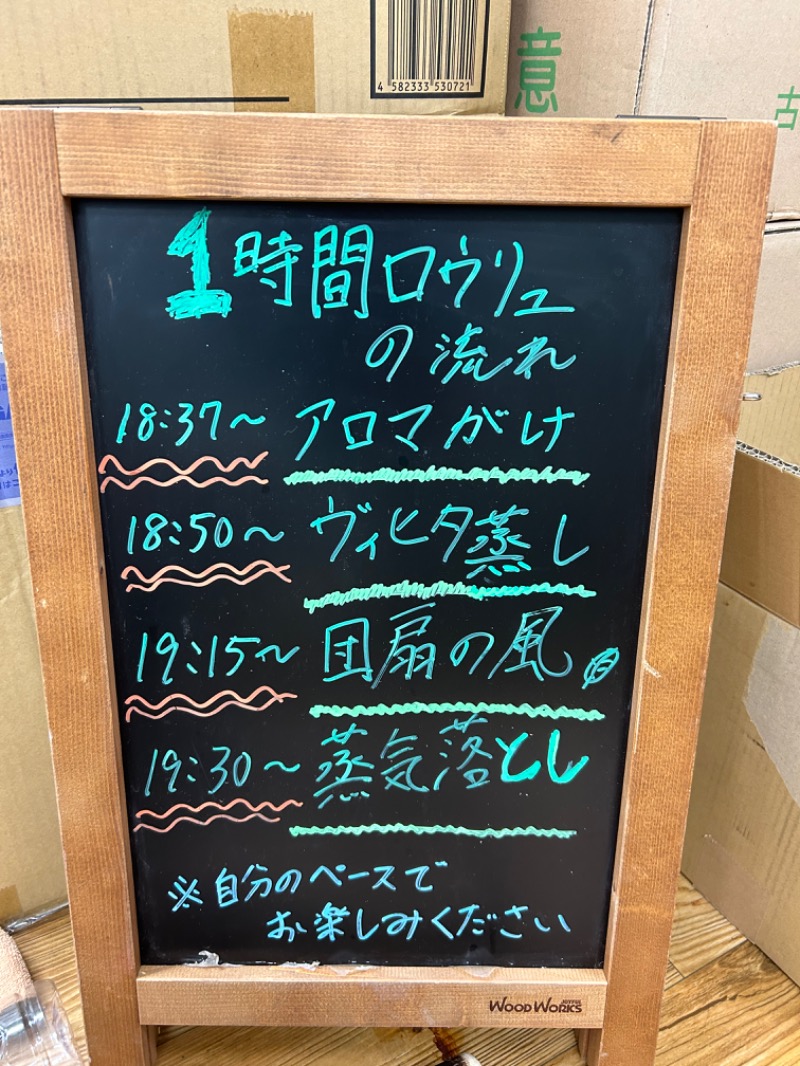 4 582333 530721
意
古
1時間ロウリュ
の流れ
18:37〜 アロマがけ
18:50〜 ヴィヒタ蒸し
19:15〜 団扇の風
19:30〜 蒸気落とし
※自分のペースで
お楽しみください
WOOD WORKS